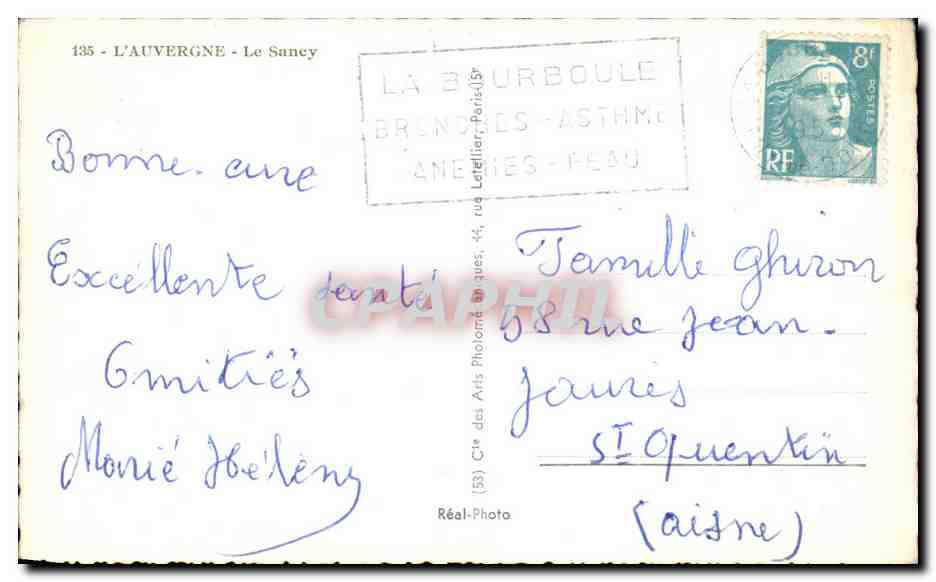 135 - L'AUVERGNE - Le Sancy
LA BOURBOULE
BRONCHES - ASTHME
ANEMIES - PEAU
8F
POSTES
RF
Bonne cure
Excellente santé
Amitiés
Marie Hélène
Famille Ghiron
98 rue Jean-
Jaurès
St Quentin
(aisne)
(53) Cie des Arts Photomécaniques, 44, rue Letellier, Paris-15e
Réal-Photo
CPAPHIL